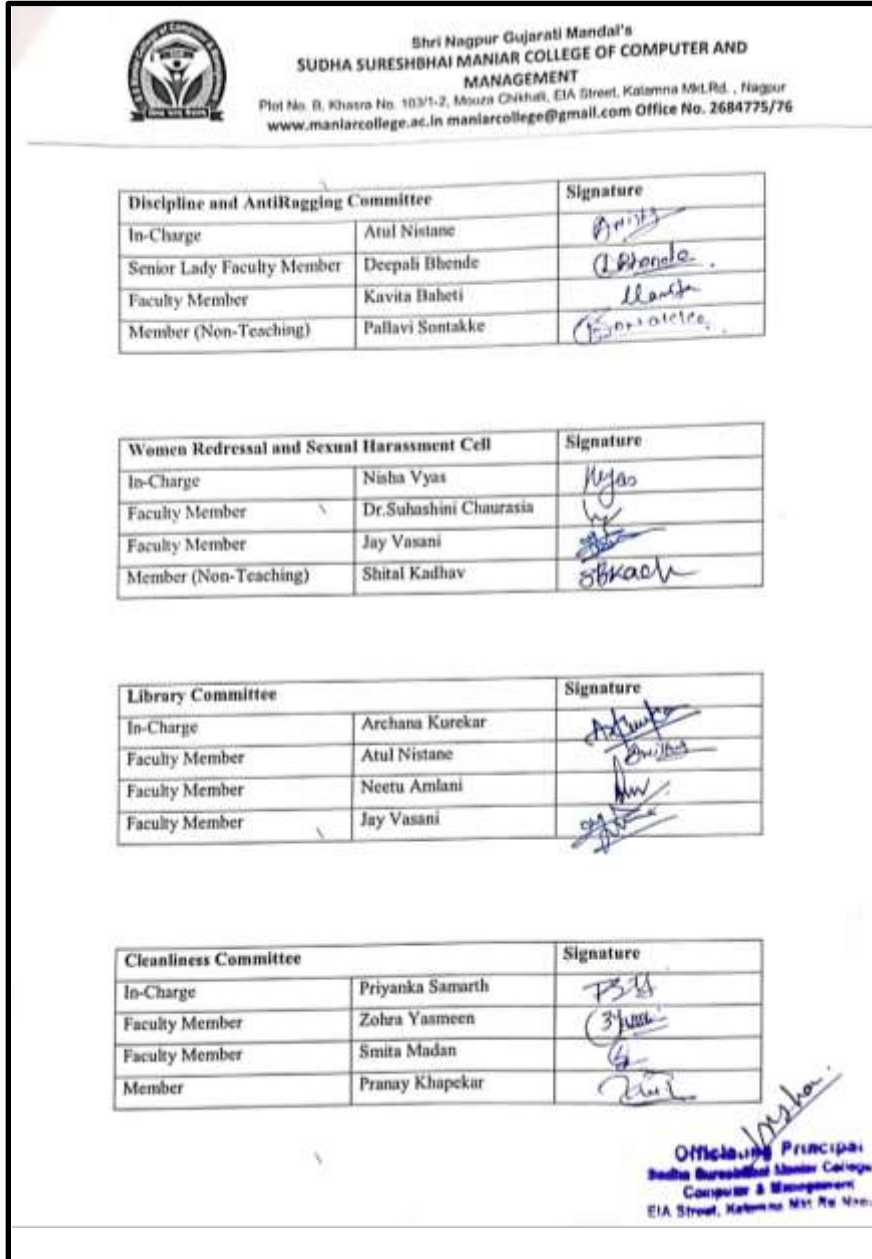 Shri Nagpur Gujarati Mandal's
SUDHA SURESHBHAI MANIAR COLLEGE OF COMPUTER AND
MANAGEMENT
Plot No. B, Khasra No. 103/1-2, Mouza Chikhali, EIA Street, Kalamna Mkt.Rd. , Nagpur
www.maniarcollege.ac.in maniarcollege@gmail.com Office No. 2684775/76
Discipline and AntiRagging Committee Signature
In-Charge Atul Nistane
Senior Lady Faculty Member Deepali Bhende
Faculty Member Kavita Baheti
Member (Non-Teaching) Pallavi Sontakke
Women Redressal and Sexual Harassment Cell Signature
In-Charge Nisha Vyas
Faculty Member Dr.Suhashini Chaurasia
Faculty Member Jay Vasani
Member (Non-Teaching) Shital Kadhav
Library Committee Signature
In-Charge Archana Kurekar
Faculty Member Atul Nistane
Faculty Member Neetu Amlani
Faculty Member Jay Vasani
Cleanliness Committee Signature
In-Charge Priyanka Samarth
Faculty Member Zohra Yasmeen
Faculty Member Smita Madan
Member Pranay Khapekar
Principal
Computer & Management
EIA Street,